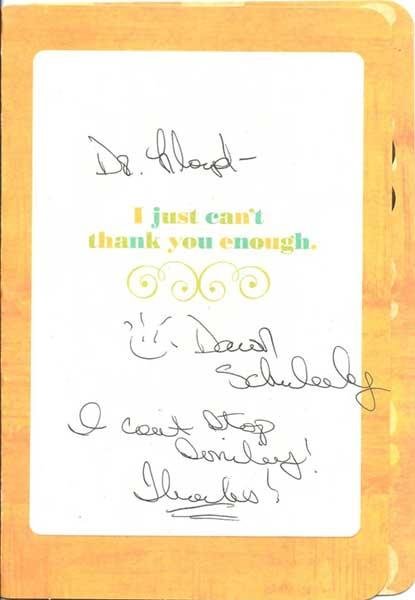 Dr. Lloyd-
I just can't
thank you enough.
Dawn
I can't stop
smiling!
Thanks!